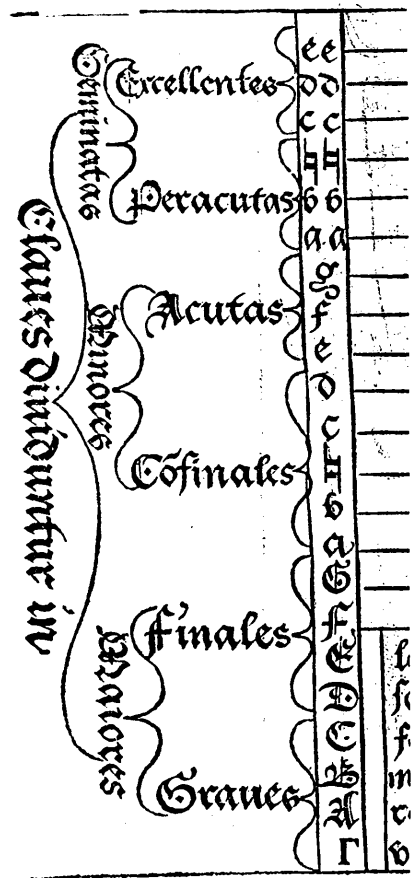 Claues Diuiduntur in
Geminatas
Minores
Maiores
Excellentes
Peracutas
Acutas
Cōfinales
Finales
Graues
ee
dd
cc
♮♮
bb
aa
g
f
e
d
c
♮
b
a
G
F
E
D
C
A
Γ